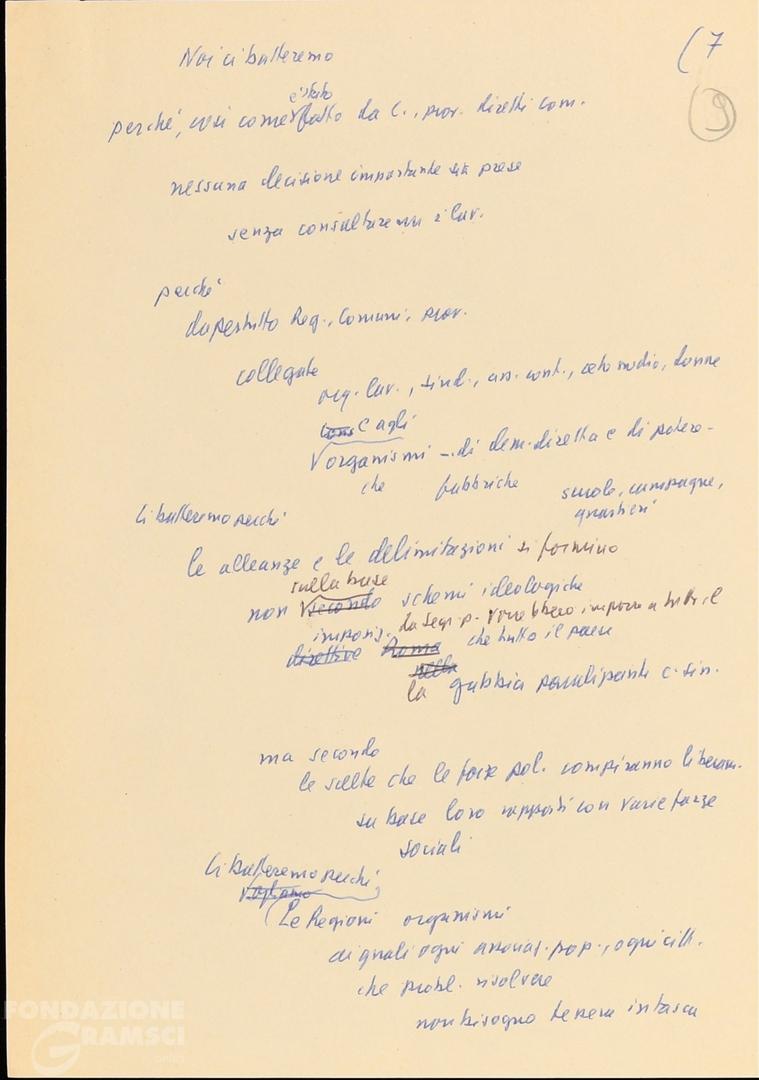 (7
9
Noi ci batteremo
è stato
perché, così come fatto da C., prov. diretti com.
nessuna decisione importante sia presa
senza consultazione i lav.
perché
dapertutto Reg., Comuni, prov.
collegate
org. lav., sind., ass. cont., ceto medio, donne
e agli
organismi - di dem. diretta e di potere -
che fabbriche scuole, campagne,
quartieri
Ci batteremo perché
le alleanze e le delimitazioni si formino
sulla base
non secondo schemi ideologiche
impos. da segr. p. vorrebbero imporre a tutto il
direttive Roma che tutto il paese
nella
la gabbia paralizzante c. sin.
ma secondo
le scelte che le forze pol. compiranno liberam.
su base loro rapporti con varie forze
sociali
Ci batteremo perché
vogliamo
(Le Regioni organismi
ai quali ogni associaz. pop., ogni citt.
che probl. risolvere
non bisogno tessera in tasca
FONDAZIONE
GRAMSCI
onlus